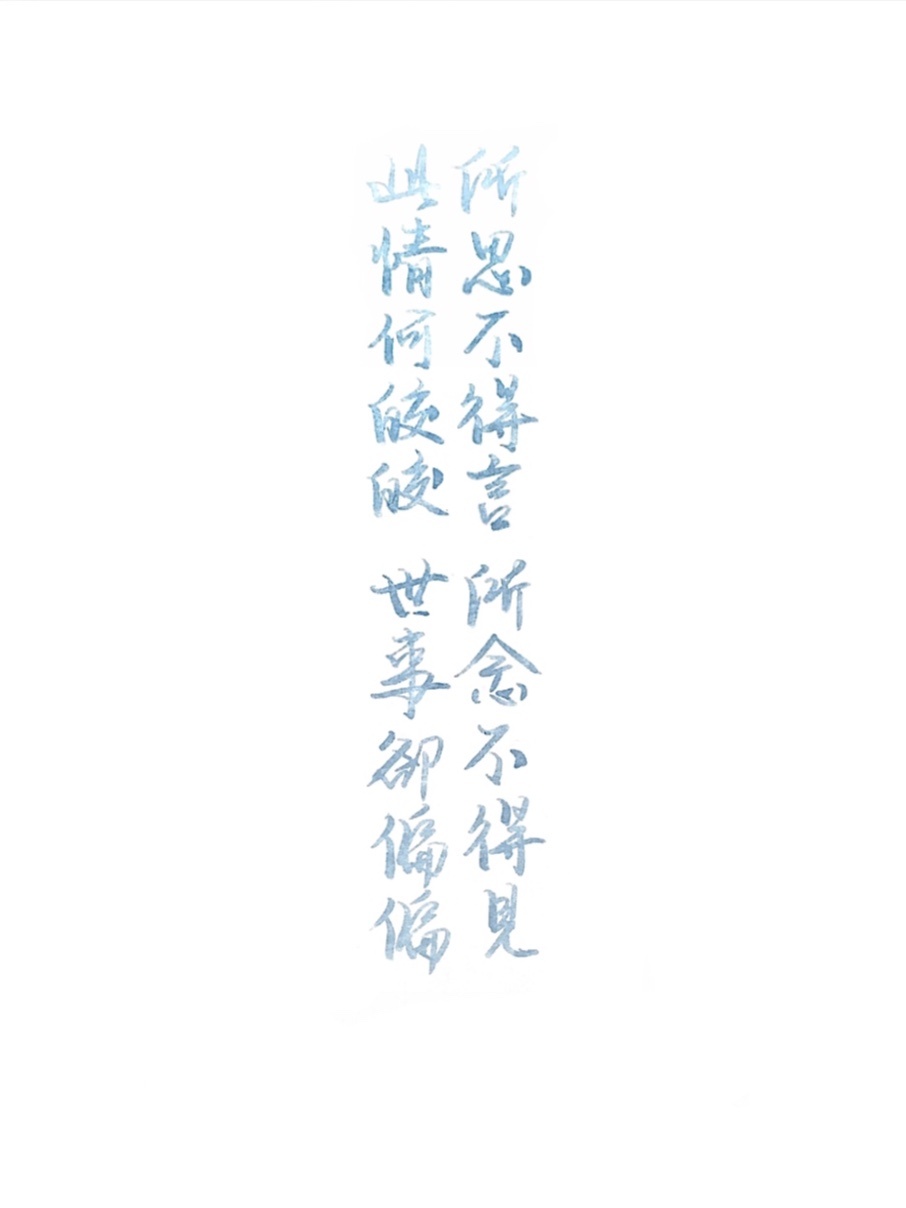 所思不得言 所念不得見
此情何皎皎 世事卻偏偏